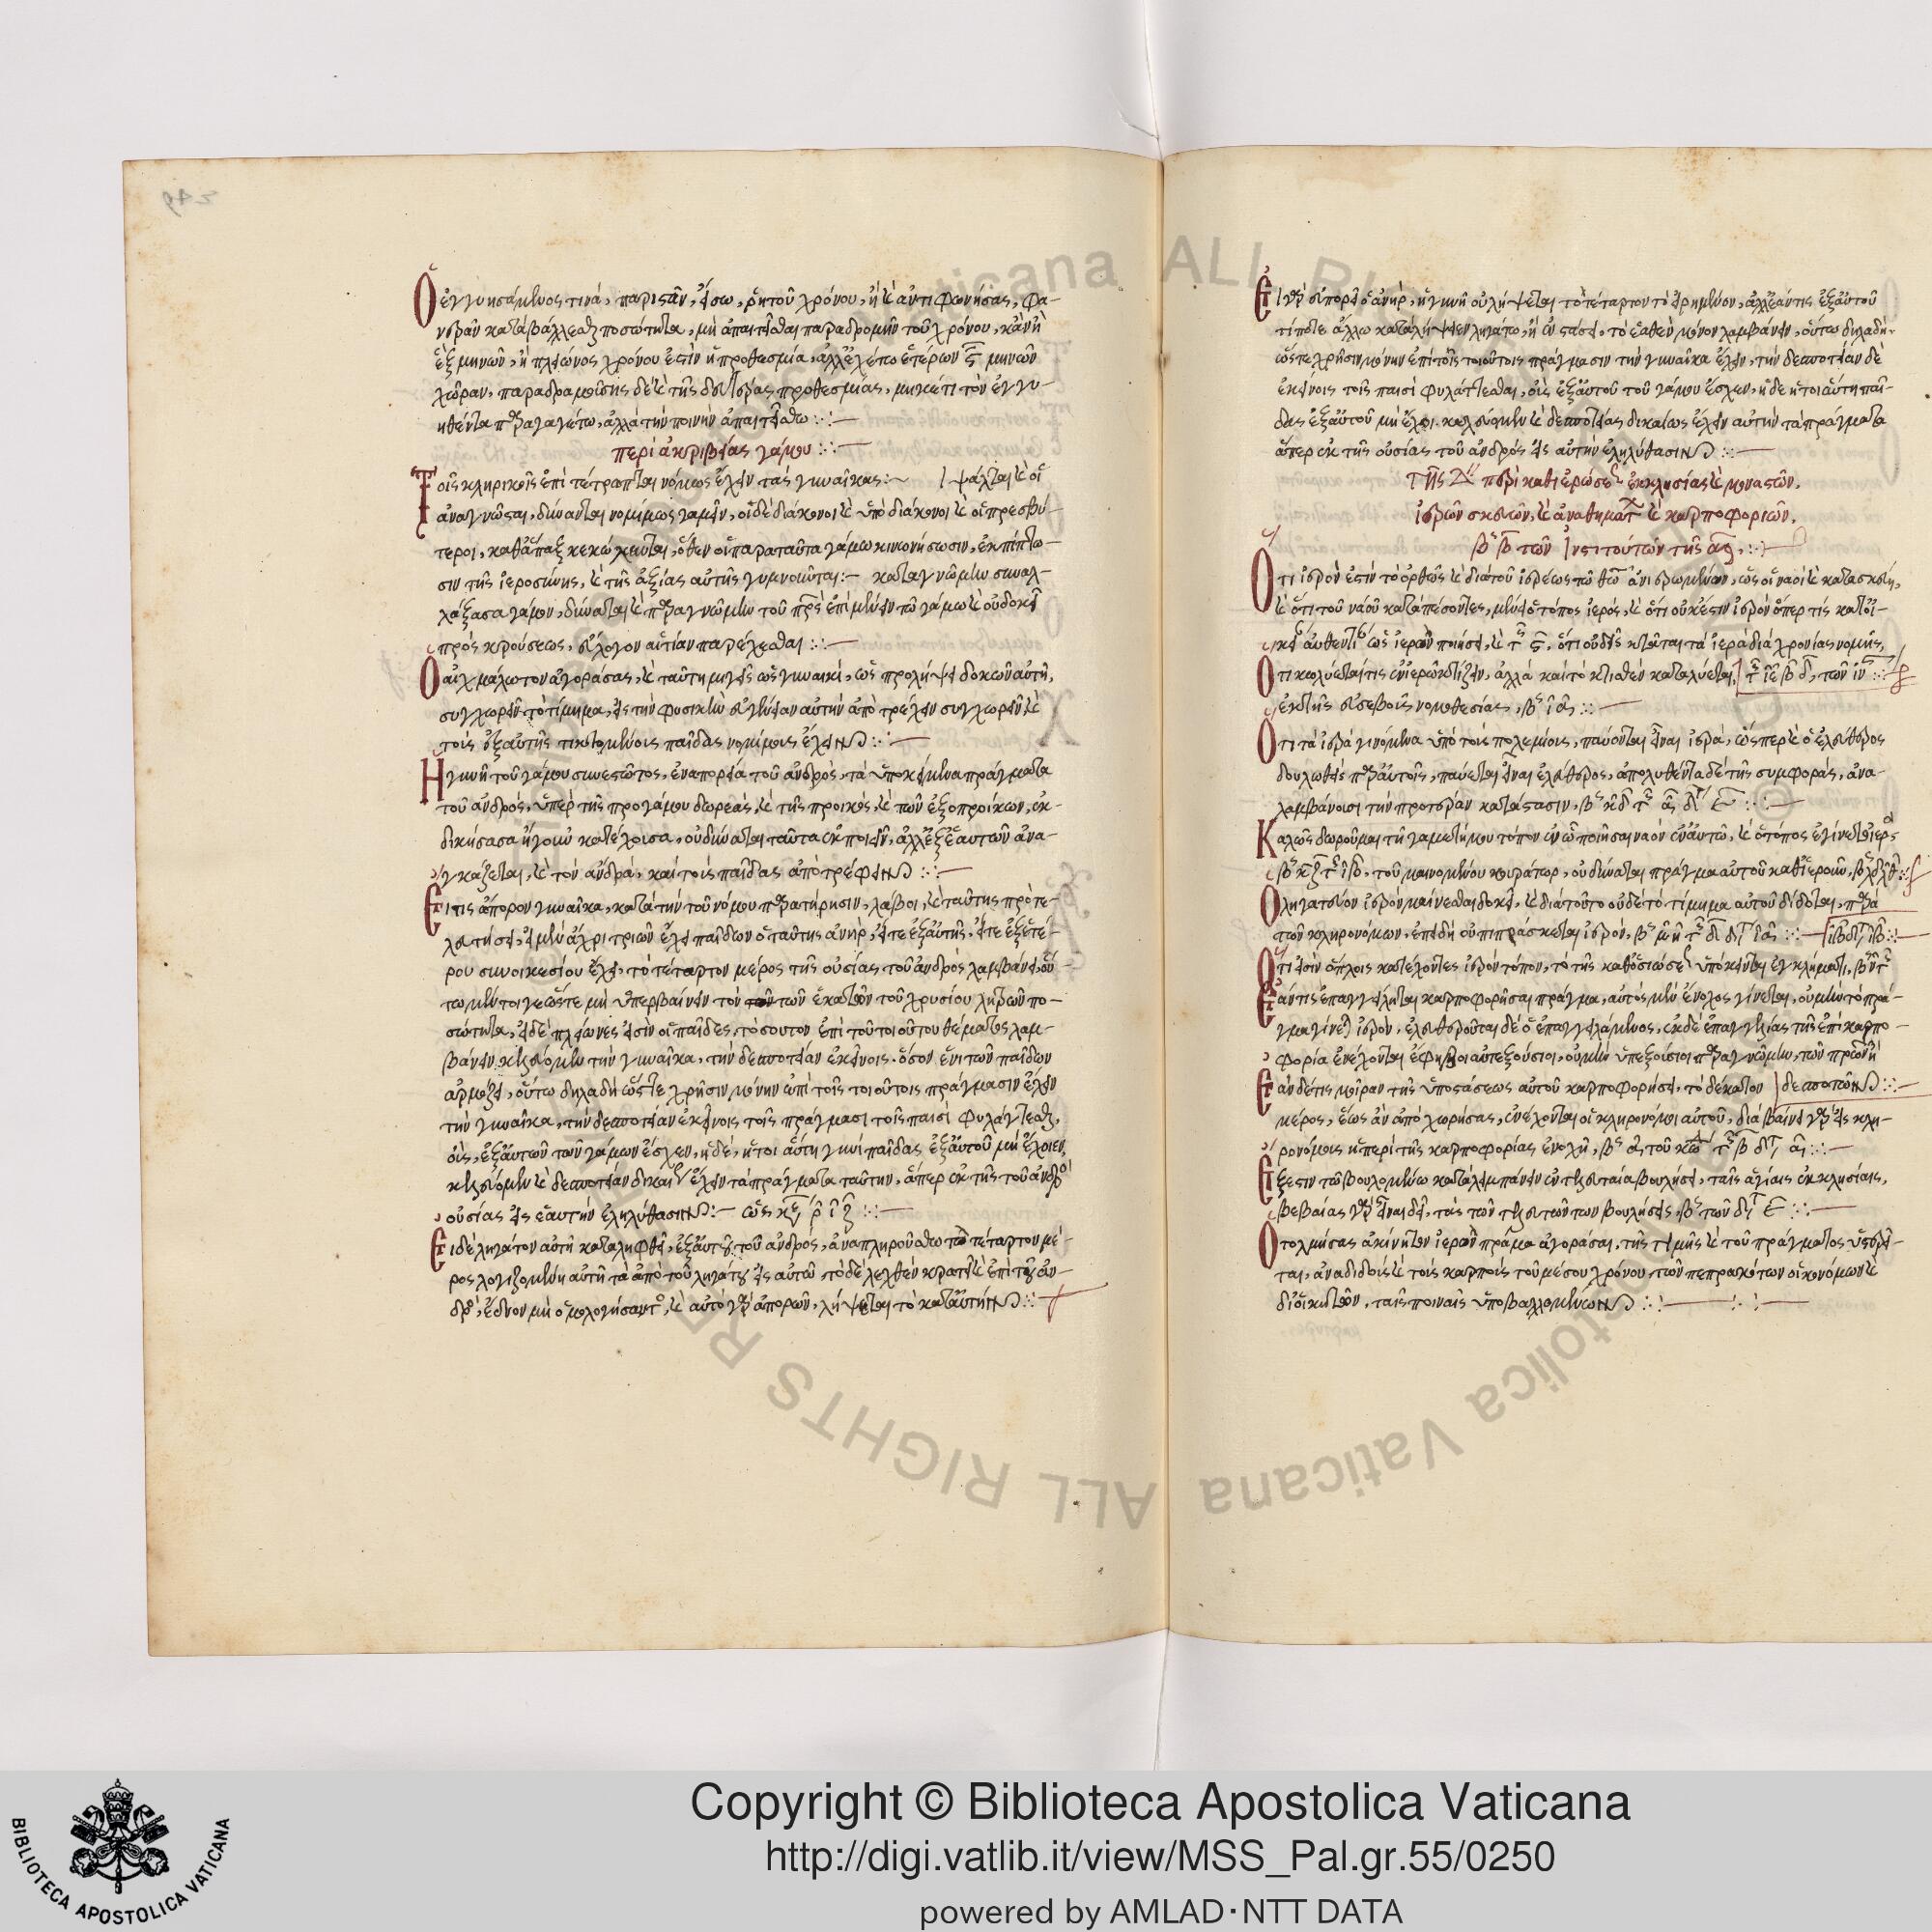 Ὁ ἐγγυησάμενος τινά, παριστᾶν, εἴσω, ῥητοῦ χρόνου, ἢ καὶ ἀντιφωνήσας, φα-
νερὰν καταβάλλεσθαι ποσότητα, μὴ ἀπαιτεῖσθαι παραδρομὴν τοῦ χρόνου, κἂν ἢ
ἓξ μηνῶν, ἢ πλείωνος χρόνου ἐστὶν ἡ προθεσμία, ἀλλ' ἑτέρων ϛ μηνῶν
χώραν, παραδραμούσης δὲ καὶ τῆς δευτέρας προθεσμίας, μηκέτι τὸν ἐγγυ-
ηθέντα παραγαγέτω, ἀλλὰ τὴν ποινὴν ἀπαιτείσθω
περὶ ἀκριβείας γάμου
Τοῖς κληρικοῖς ἐπιτέτραπται νόμως ἔχειν τὰς γυναῖκας ψάλται καὶ οἱ
ἀναγνῶσται, δύνανται νομίμως γαμεῖν, οἱ δὲ διάκονοι καὶ ὑποδιάκονοι καὶ οἱ πρεσβύ-
τεροι, καθάπαξ κεκώλυνται, ὅθεν οἱ παρὰ ταῦτα γάμω κινονήσωσιν, ἐκπίπτω-
σιν τῆς ἱεροσύνης, καὶ τῆς ἀξίας αὐτῆς γυμνοῦνται καταγνώμην συναλ-
λάξασα γάμον, δύναται καὶ παρὰ γνώμην τοῦ πρς ἐπιμένειν τῶ γάμω καὶ οὐ δοκεῖ
πρὸς κρούσεως, εὔλογον αἰτίαν παρέχεσθαι
Ὁ αἰχμάλωτον ἀγοράσας, καὶ ταύτη μιγεὶς ὡς γυναικί, ὡς προλήψει δοκῶν αὐτῆ,
συγχωρεῖν τὸ τίμημα, εἰς τὴν φυσικὴν εὐγένειαν αὐτὴν ἀποτρέχειν συγχωρεῖν, καὶ
τοὺς ἐξ αὐτῆς τικτομένους παῖδας νομίμους ἔχειν
Ἡ γυνὴ τοῦ γάμου συνεστῶτος, ἐν ἀπορεία τοῦ ἀνδρὸς, τὰ ὑποκείμενα πράγματα
τοῦ ἀνδρὸς, ὑπὲρ τῆς προγάμου δωρεᾶς, καὶ τῆς προικὸς, καὶ τῶν ἐξοπροίκων, ἐκ-
δικήσασα ἤγουν κατέχουσα, οὐ δύναται ταῦτα ἐκποιεῖν, ἀλλ' ἐξ ἑαυτῶν ἀνα-
γκάζεται, καὶ τὸν ἄνδρα, καὶ τοὺς παῖδας ἀποτρέφειν
Εἴ τις ἄπορον γυναῖκα, κατὰ τὴν τοῦ νόμου παρατήρησιν, λάβοι, καὶ ταύτης πρὸ τε-
λευτήσει, εἰ μὲν ἄχρι τριῶν ἔχει παίδων ὁ ταύτης ἀνὴρ, εἴτε ἐξ αὐτῆς, εἴτε ἐξ ἑτέ-
ρου συνοικεσίου ἔχει, τὸ τέταρτον μέρος τῆς οὐσίας τοῦ ἀνδρὸς λαμβάνει, οὕ-
τω μέντοιγε ὥστε μὴ ὑπερβαίνειν τὸν τῶν ἑκατὸν τοῦ χρυσίου λιτρῶν πο-
σότητα, εἰ δὲ πλείωνες εἰσὶν οἱ παῖδες, τοσοῦτον ἐπὶ τοῦ τοιούτου θέματος λαμ-
βάνειν κελεύομεν τὴν γυναῖκα, τὴν δεσποτείαν ἐκείνοις. ὅσον ἑνὶ τῶν παίδων
ἁρμόζει, οὕτω δηλαδὴ ὥστε χρῆσιν μόνην ἐπὶ τοῖς τοιούτοις πράγμασιν ἔχειν
τὴν γυναῖκα, τὴν δεσποτείαν ἐκείνοις τοῖς πράγμασι τοῖς παισὶ φυλάττεσθαι,
οὓς, ἐξ αὐτῶν τῶν γάμων ἔσχεν, ἢ δὲ, ἤτοι αὕτη γυνὴ παῖδας ἐξ αὐτοῦ μὴ ἔχοιεν,
κελεύομεν καὶ δεσποτείαν δικαίως ἔχειν τὰ πράγματα ταύτην, ἅπερ ἐκ τῆς τοῦ ἀνδρὸς
οὐσίας εἰς ἑαυτὴν ἐληλύθασιν
Εἰ δὲ ληγάτον αὐτῆ καταλήφθει, ἐξ αὐτοῦ τοῦ ἀνδρὸς, ἀναπληρούσθω τὸ τέταρτον μέ-
ρος λογιζομένη αὐτῆ τὰ ἀπὸ τοῦ ληγάτου εἰς αὐτοῦ, τὸ δὲ λεχθὲν κρατεῖ καὶ ἐπὶ τοῦ ἀν-
δρὸς, ἔδνον μὴ ὁμολογήσαντος, καὶ αὐτὸ γὰρ ἀπορῶν, λήψεται τὸ κατ' αὐτὴν
Εἰ γὰρ εὐπορεῖ ὁ ἀνὴρ, ἡ γυνὴ οὐ λήψεται τὸ τέταρτον τὸ εἰρημένον, ἀλλ' ἐάν τις ἐξ αὐτοῦ
τίποτε ἄλλω καταλήψειεν ληγάτω, ἢ ἐνστάσει, τὸ ἐαθὲν μόνον λαμβάνειν, οὕτω δηλαδὴ
ὥστε χρῆσιν μόνην ἐπὶ τοῖς τοιούτοις πράγμασιν τὴν γυναῖκα ἔχειν, τὴν δεσποτείαν δὲ
ἐκείνοις τοῖς παισὶ φυλάττεσθαι, οὓς ἐξ αὐτοῦ τοῦ γάμου ἔσχεν, ἢ δὲ ἤτοι αὕτη παῖ-
δας ἐξ αὐτοῦ μὴ ἔχει. κελεύομεν καὶ δεσποτείας δικαίως ἔχειν αὐτὴν τὰ πράγματα
ἅπερ ἐκ τῆς οὐσίας τοῦ ἀνδρὸς εἰς αὐτὴν ἐληλύθασιν
περὶ καθιερώσεως ἐκκλησίας καὶ μοναστῶν,
ἱερῶν σκευῶν, καὶ ἀναθημάτ καὶ καρποφοριῶν.
τῶν Ἰνστιτούτων τῆς
Ὅτι ἱερὸν ἐστὶν τὸ ὀρθῶς καὶ διὰ τοῦ ἱερέως τῶ θω ἀνιερωμένον, ὡς οἱ ναοὶ καὶ κατασκευὴ,
καὶ ὅτι τοῦ ναοῦ καταπέσοντος, μένει ὁ τόπος ἱερὸς, καὶ ὅτι οὐκ ἔστιν ἱερὸν ὅπερ τίς κατοι-
κεῖ αὐθεντικῶς ἱερὸν ποιήσει, ὅτι οὐδεὶς κτᾶται τὰ ἱερὰ διὰ χρονίας νομῆς,
Ὅτι κωλύεται τις ἐν ἱερῶ κτίζειν, ἀλλὰ καὶ τὸ κτισθὲν καταλύεται,
ἐκ τῆς εὐσεβοῦς νομοθεσίας,
Ὅτι τὰ ἱερὰ γινόμενα ὑπὸ τοῖς πολεμίοις, παύονται εἶναι ἱερὰ, ὥσπερ καὶ ὁ ἐλεύθερος
δουλωθεὶς παρ' αὐτοῖς, παύεται εἶναι ἐλεύθερος, ἀπολυθέντα δὲ τῆς συμφορᾶς, ἀνα-
λαμβάνουσι τὴν προτέραν κατάστασιν,
Καλῶς δωροῦμαι τῆ γαμετῆ μου τόπον ἐν ᾧ ποιῆσαι ναὸν ἐν αὐτῶ, καὶ ὁ τόπος ἐγίνετο ἱερὸς
τοῦ μαινομένου κουράτωρ, οὐ δύναται πράγμα αὐτοῦ καθιεροῦν,
Ὁ ληγατεύων ἱερὸν μαίνεσθαι δοκεῖ, καὶ διὰ τοῦτο οὐδὲ τὸ τίμημα αὐτοῦ δίδοται, παρὰ
τῶν κληρονόμων, ἐπειδὴ οὐ πιπράσκεται ἱερὸν,
Ὅτι εἰσὶν ὅπλοις κατέχοντες ἱερὸν τόπον, τὸ τῆς καθοσιώσεως ὑπόκεινται ἐγκλήματι,
Ἐάν τις ἐπαγγείληται καρποφορῆσαι πράγμα, αὐτὸς μὲν ἔνοχος γίνεται, οὐ μὴν τὸ πρά-
γμα γίνεται ἱερὸν, ἐλευθεροῦται δὲ ὁ ἐπαγγειλάμενος, ἐκ δὲ ἐπαγγελίας τῆς ἐπὶ καρπο-
φορία ἐνέχονται ἔφηβοι αὐτεξούσιοι, οὐ μὴν ὑπεξούσιοι παρὰ γνώμην, τῶν πρων ἢ
Ἐὰν δέ τις μοῖραν τῆς ὑποστάσεως αὐτοῦ καρποφορήσει, τὸ δέκατον δεσποτῶν
μέρος, ἕως ἂν ἀποχωρήσας, ἐνέχονται οἱ κληρονόμοι αὐτοῦ, διαβαίνει γὰρ εἰς κλη-
ρονόμους ἡ περὶ τῆς καρποφορίας ἐνοχὴ,
Ἔξεστιν τῶ βουλομένω καταλιμπάνειν ἐν τελευταία βουλήσει, ταῖς ἁγίαις ἐκκλησίαις,
βεβαίας γὰρ εἶναι δεῖ, τὰς τῶν τελευτώντων βουλήσεις,
Ὁ τολμήσας ἀκίνητον ἱερὸν πράμα ἀγοράσαι, τῆς τιμῆς καὶ τοῦ πράγματος ὑστερεῖ-
ται, ἀναδιδοὺς καὶ τοὺς καρποὺς τοῦ μέσου χρόνου, τῶν πεπρακότων οἰκονόμων καὶ
διοικητῶν, ταῖς ποιναῖς ὑποβαλλομένων
Copyright © Biblioteca Apostolica Vaticana
http://digi.vatlib.it/view/MSS_Pal.gr.55/0250
powered by AMLAD·NTT DATA
BIBLIOTECA APOSTOLICA VATICANA